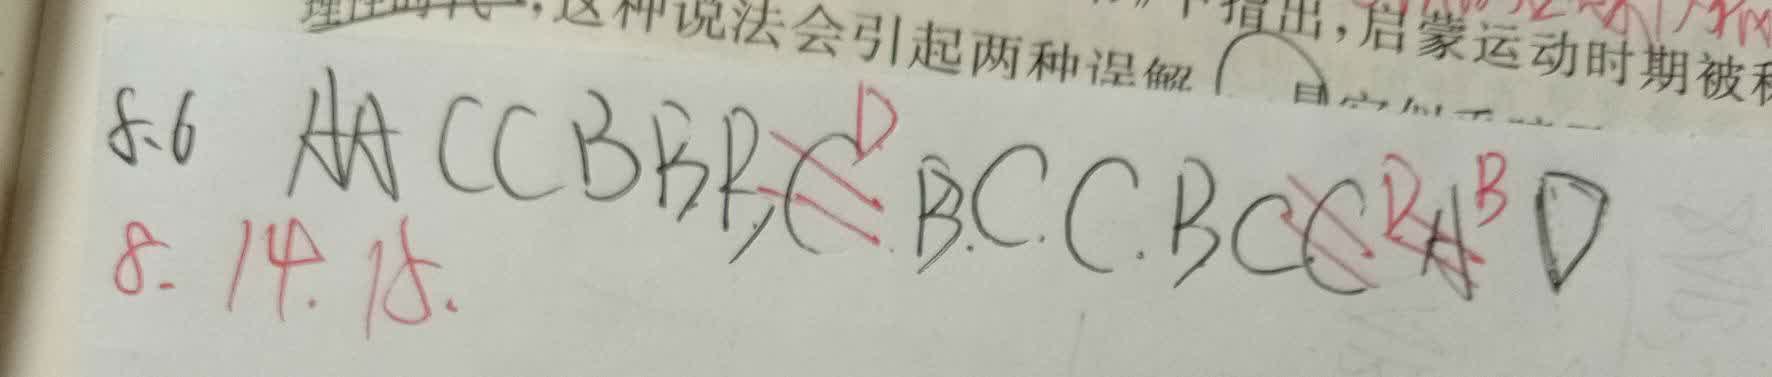 ,这种说法会引起两种误解
指出,启蒙运动时期被称
8.6 AACCBBB,C D B.C.C.BCC.D A B D
8. 14. 15.